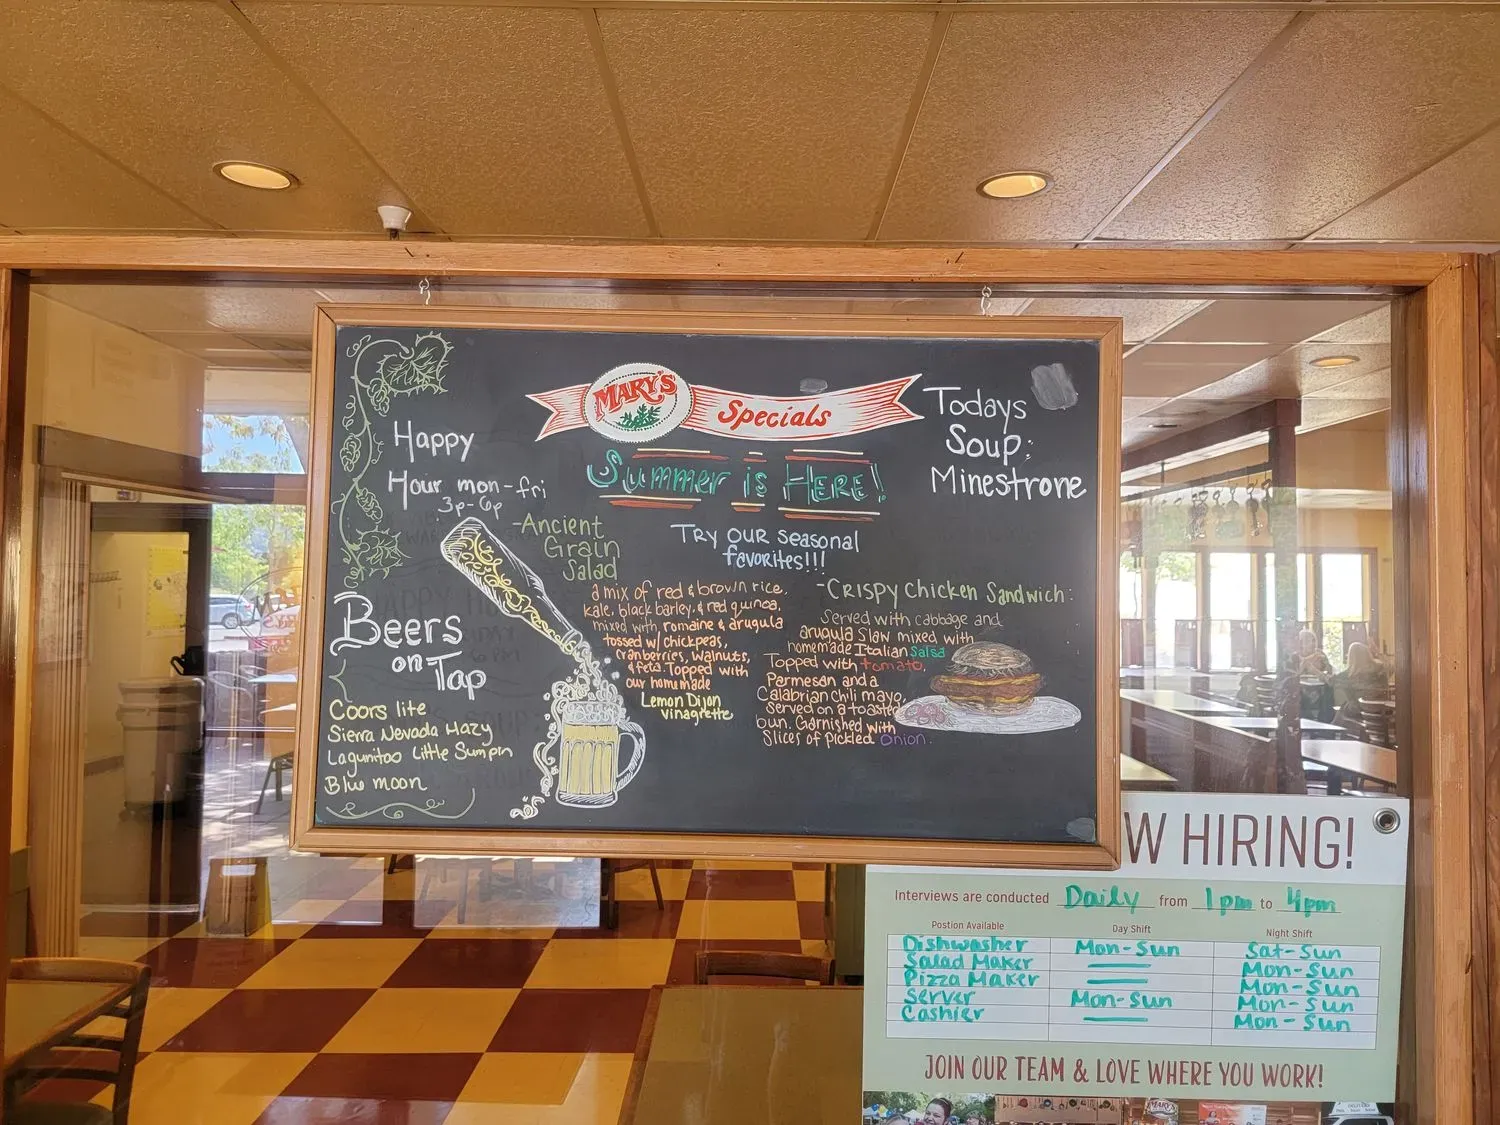 MARY'S
Specials
Summer is HERE!
Happy
Hour mon-fri
3p-6p
Todays
Soup:
Minestrone
TRY OUR seasonal
favorites!!!
-Ancient
Grain
Salad
a mix of red & brown rice,
kale, black barley, & red quinoa,
mixed with romaine & arugula
tossed w/ chickpeas,
cranberries, walnuts,
& feta. Topped with
our homemade
Lemon Dijon
vinagrette
-CRISPY CHICKEN Sandwich:
Served with cabbage and
arugula Slaw mixed with
homemade Italian Salsa
Topped with tomato,
Parmesan and a
Calabrian chili mayo,
served on a toasted
bun. Garnished with
Slices of Pickled Onion.
Beers
on Tap
Coors lite
Sierra Nevada Hazy
Lagunitas Little Sumpin
Blue moon
W HIRING!
Interviews are conducted Daily from 1pm to 4pm
Postion Available Day Shift Night Shift
Dishwasher Mon-Sun Sat-Sun
Salad Maker Mon-Sun
Pizza Maker Mon-Sun
Server Mon-Sun Mon-Sun
Cashier Mon-Sun
JOIN OUR TEAM & LOVE WHERE YOU WORK!
MARY'S